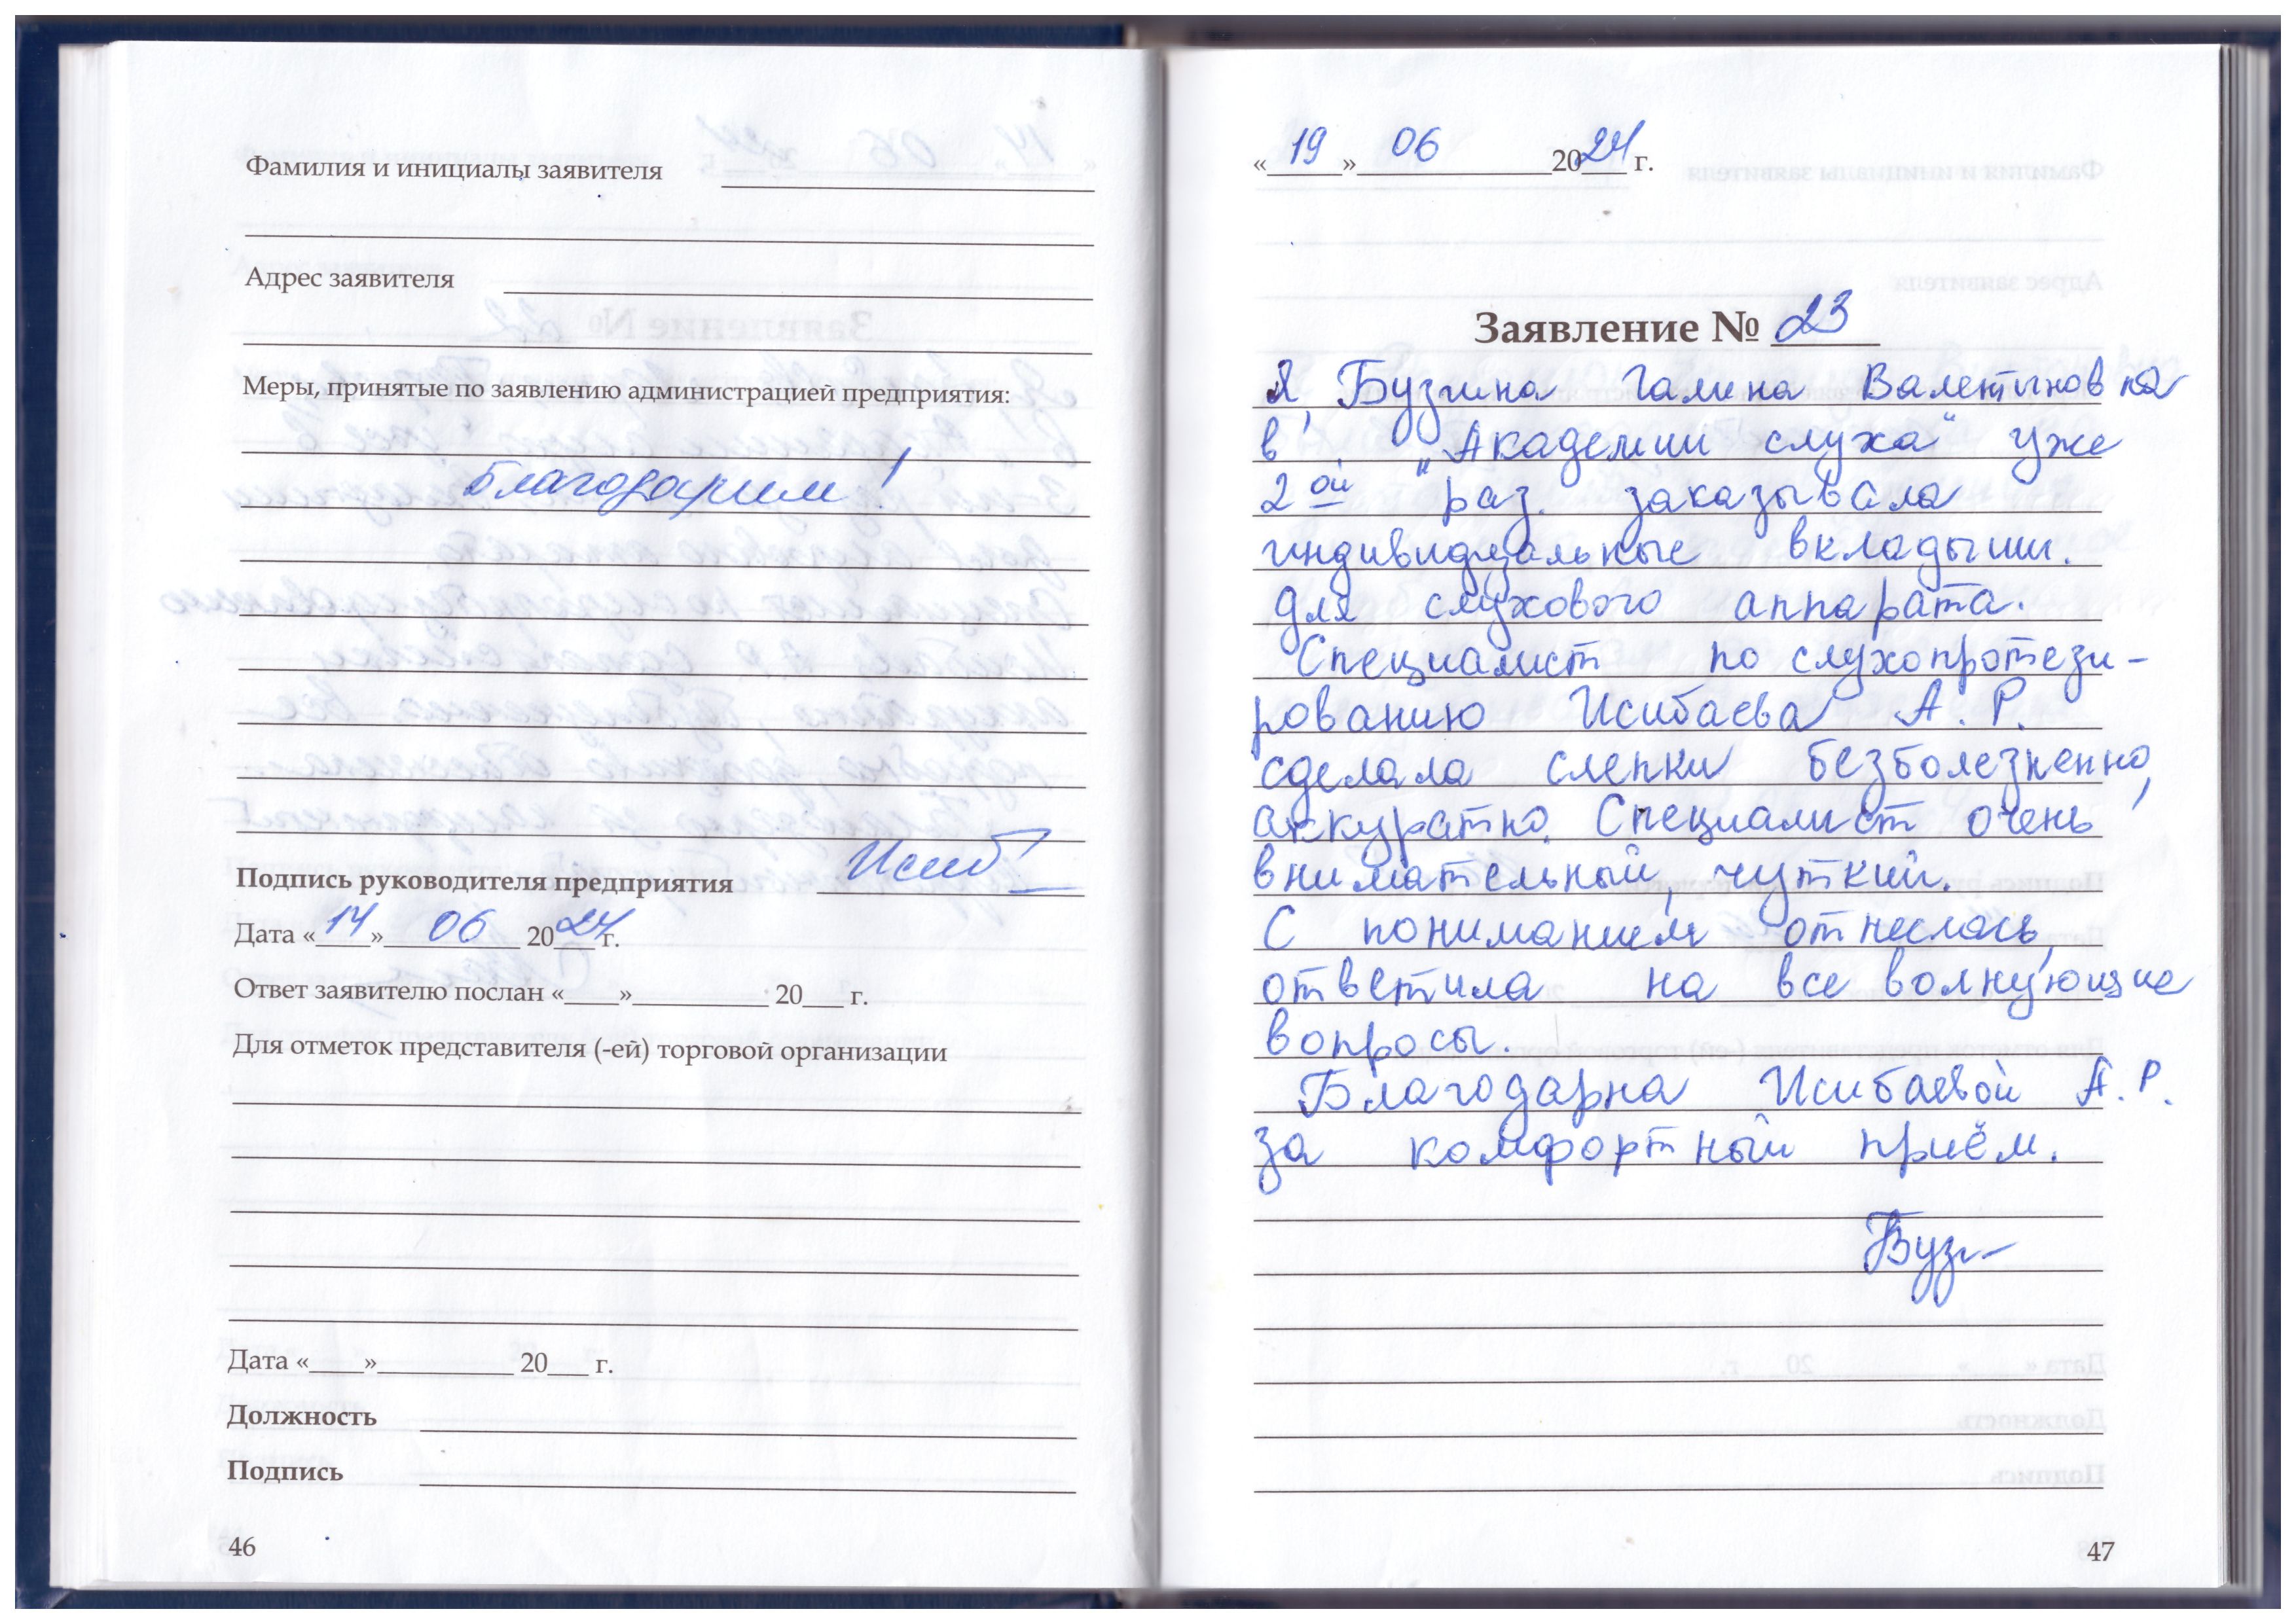 Фамилия и инициалы заявителя
Адрес заявителя
Меры, принятые по заявлению администрацией предприятия:
Благодарим!
Подпись руководителя предприятия Исиб
Дата «14» 06 2024 г.
Ответ заявителю послан «____»__________ 20___ г.
Для отметок представителя (-ей) торговой организации
Дата «____»__________ 20___ г.
Должность
Подпись
46
«19» 06 2024 г.
Заявление № 23
Я, Бузина Галина Валентиновна
в "Академии слуха" уже
2ой раз заказывала
индивидуальные вкладыши.
для слухового аппарата.
Специалист по слухопротези-
рованию Исибаева А. Р.
сделала слепки безболезненно,
аккуратно. Специалист очень
внимательный, чуткий.
С пониманием отнеслась,
ответила на все волнующие
вопросы.
Благодарна Исибаевой А. Р.
за комфортный приём.
Буз
47